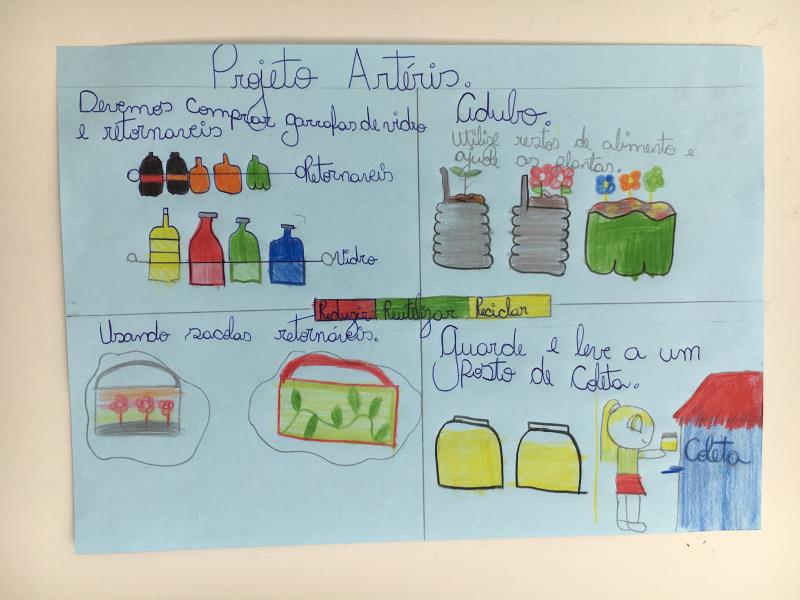 Projeto Artéris.
Devemos comprar garrafas de vidro
e retornaveis
Retornaveis
Vidro
Adubo.
Utilize restos de alimento e
ajude as plantas.
Reduzir Reutilizar Reciclar
Usando sacolas retornáveis.
Guarde e leve a um
Posto de Coleta.
Coleta